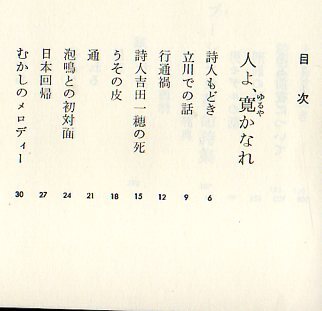 目次
人よ、寛かなれ
ゆるや
詩人もどき 6
立川での話 9
行通禍 12
詩人吉田一穂の死 15
うその皮 18
通 21
泡鳴との初対面 24
日本回帰 27
むかしのメロディー 30